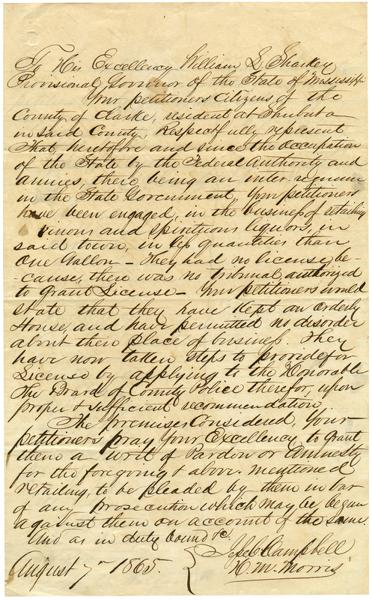 To His Excellency William L Sharkey
Provisional Governor of the State of Mississippi
Your petitioners Citizens of the
County of Clarke, resident at Shubuta
in said County, Respectfully represent
That heretofore and since the occupation
of the State by the Federal Authority and
armies, there being an inter-regnum
in the State Government, Your petitioners
have been engaged, in the business of retailing
vinous and spirituous liquors, in
said town, in less quantities than
One Gallon - They had no license, be-
cause, there was no tribunal authorized
to Grant License - Your petitioners would
state that they have kept an orderly
House, and have permitted no disorder
about their place of business. They
have now taken steps to provide for
License by applying to the Honorable
The Board of County Police therefor, upon
proper & sufficient recommendation,
The premises Considered, Your
petitioners pray Your Excellency to Grant
them a writ of Pardon or Amnesty
for the foregoing & above mentioned
retailing, to be pleaded by them in bar
of any prosecution which may be began
against them on account of the same.
And as in duty bound &c.
Campbell
August 7th 1865. H. M. Morris